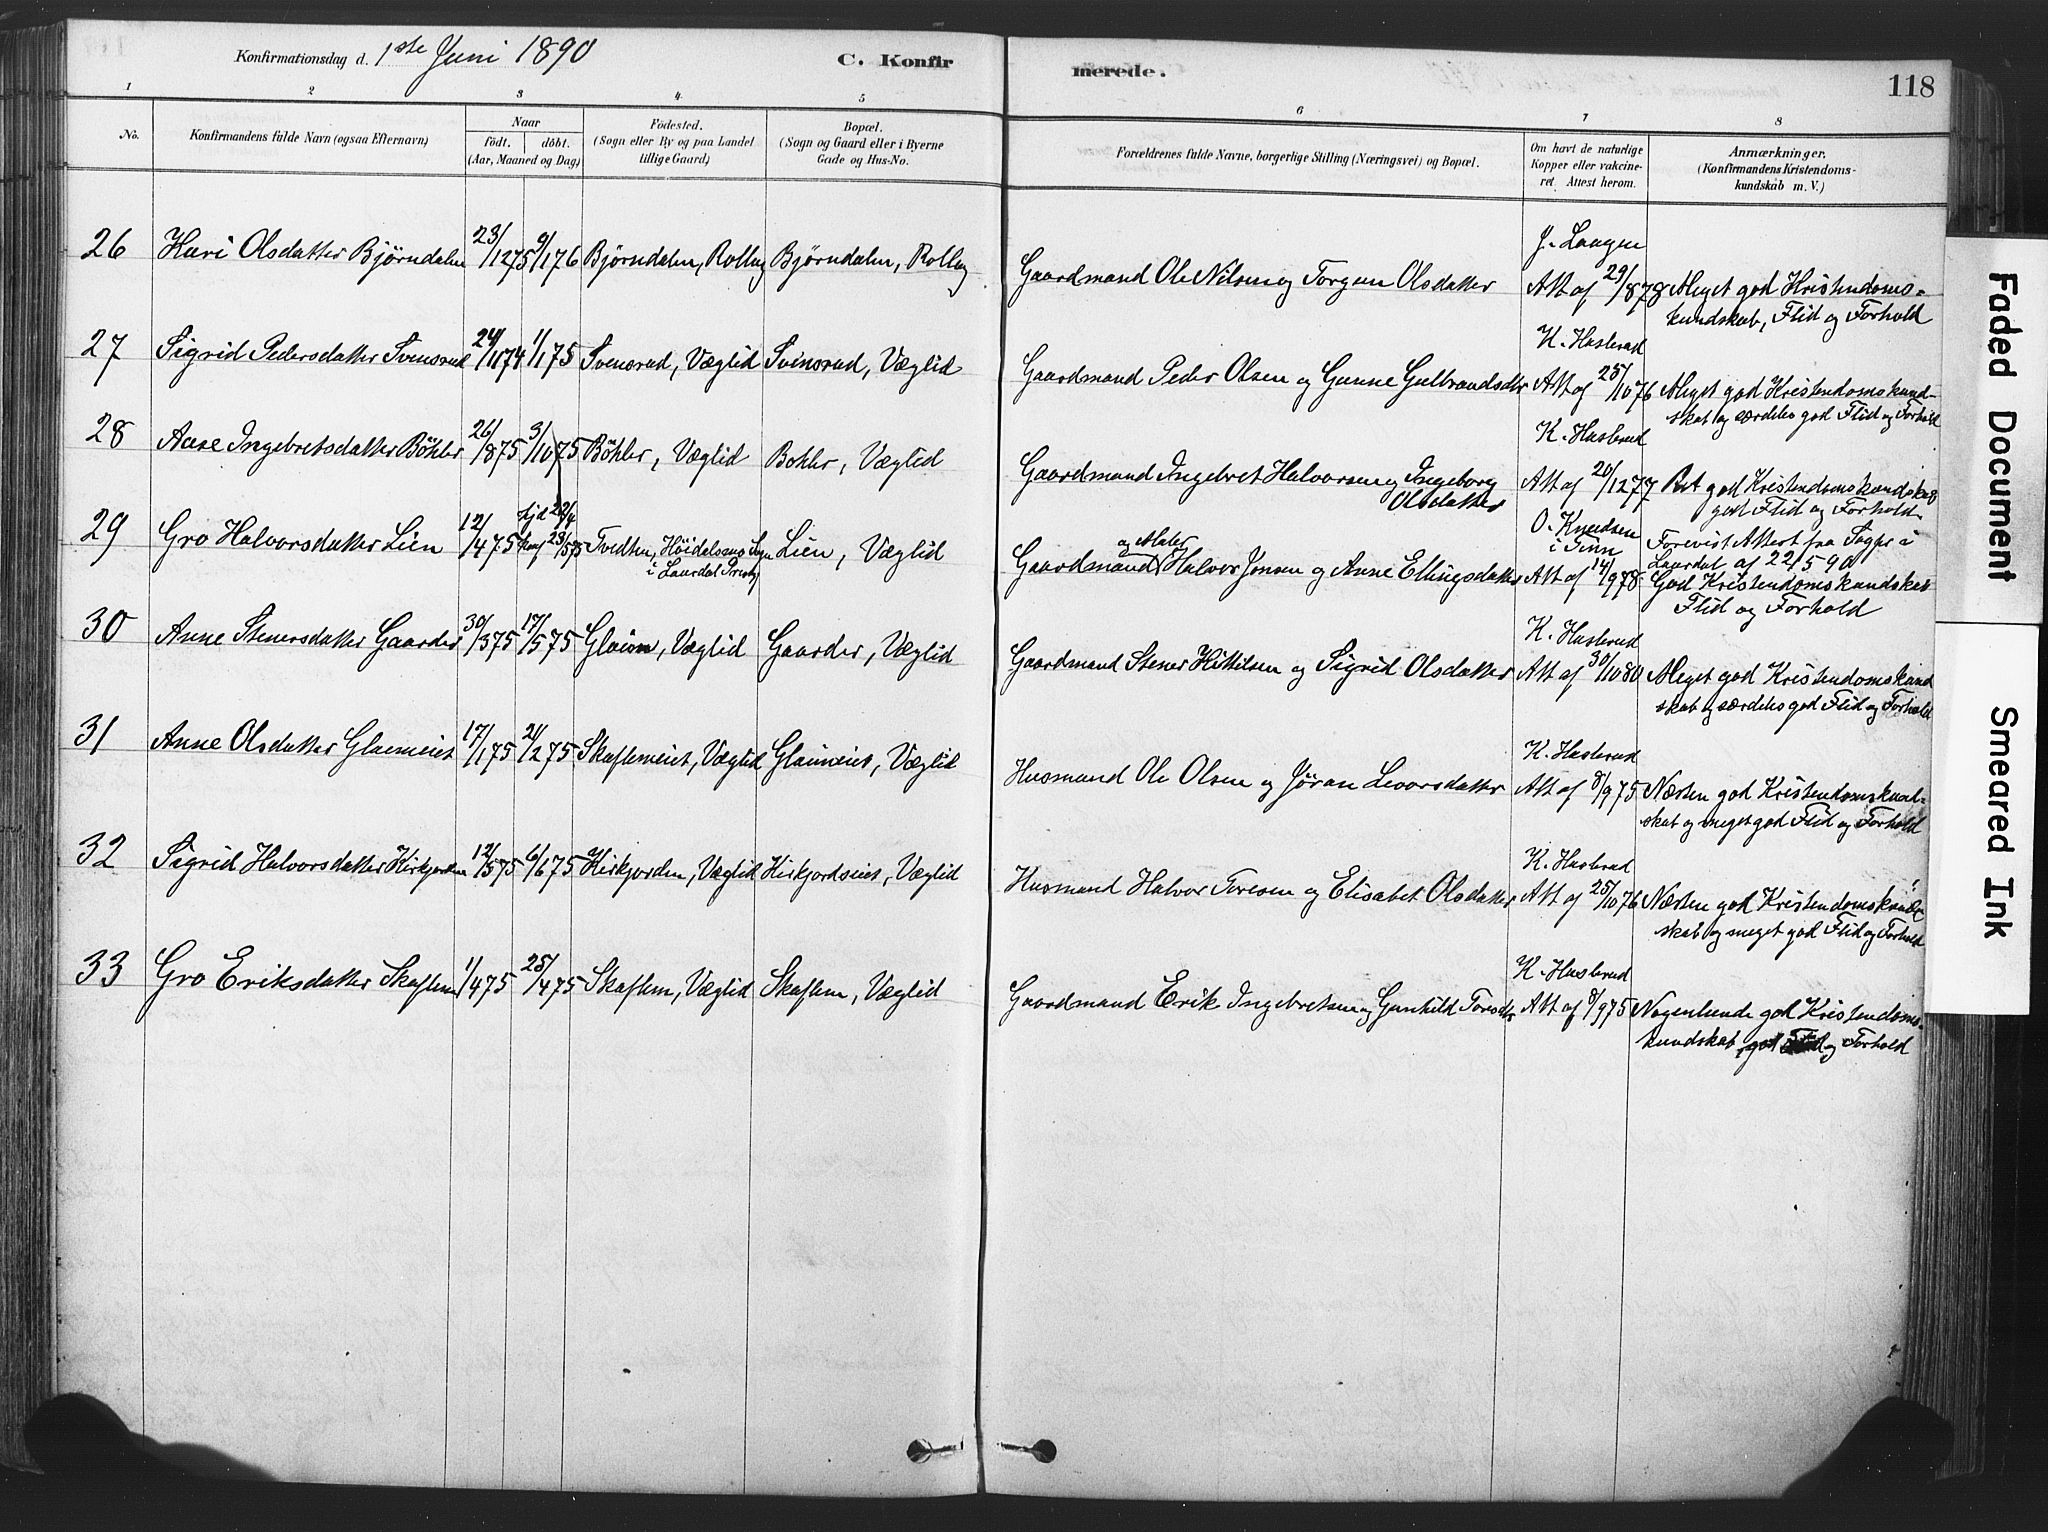 Konfirmationsdag d. 1ste Juni 1890
C. Konfirmerede.
118
1 2 3 4 5 6 7 8
No.
Konfirmandens fulde Navn (ogsaa Efternavn)
Naar
födt. döbt.
(Aar, Maaned og Dag)
Födested.
(Sogn eller By og paa Landet
tillige Gaard)
Bopæl.
(Sogn og Gaard eller i Byerne
Gade og Hus-No.
Forældrenes fulde Navne, borgerlige Stilling (Næringsvei) og Bopæl.
Om havt de naturlige
Kopper eller vakcine-
ret. Attest herom.
Anmærkninger.
(Konfirmandens Kristendoms-
kundskab m. V.)
26 Kari Olsdatter Bjørndalen 23/1275 9/176 Bjørndalen, Rollag Bjørndalen, Rollag
Gaardmand Ole Nilsen og Torgun Olsdatter
J. Laagen
Att af 29/878
Meget god Kristendoms-
kundskab, Flid og Forhold
27 Sigrid Pedersdatter Svensrud 24/1174 1/175 Svensrud, Væglid Svensrud, Væglid
Gaardmand Peder Olsen og Gunne Gulbrandsdtr
K. Hasberud
Att af 25/1076
Meget god Kristendomskund-
skab og særdeles god Flid og Forhold
28 Aase Ingebretsdatter Böhler 26/875 3/1075 Böhler, Væglid Bohler, Væglid
Gaardmand Ingebret Halvorsen og Ingeborg
Olsdatter
K. Hasberud
Att af 20/1277
Ret god Kristendomskundskab
god Flid og Forhold
29 Gro Halvorsdatter Lien 12/475 hjd 22/4 23/575 Tvedten, Höidalsmo Sogn
i Laurdal Præstg
Lien, Væglid
Gaardmand og Maler Halvor Jonsen og Anne Ellingsdatter
O. Knudsen
i Tinn
Att af 14/978
Forevist Attest fra Sogpr i
Laurdal af 22 5 90
God Kristendomskundskab
Flid og Forhold
30 Anne Stenersdatter Gaarder 30/375 17/575 Glaim, Væglid Gaarder, Væglid
Gaardmand Stener Kittilsen og Sigrid Olsdatter
K. Hasberud
Att af 30/1080
Meget god Kristendomskund
skab og særdeles god Flid og Forhold
31 Anne Olsdatter Glaimeiet 17/175 21/275 Skaflemeiet, Væglid Glaimeiet, Væglid
Husmand Ole Olsen og Jöran Levorsdatter
K. Hasberud
Att af 8/975
Næsten god Kristendomskund-
skab og meget god Flid og Forhold
32 Sigrid Halvorsdatter Kirkjorden 12/575 6/675 Kirkjorden, Væglid Kirkjordseiet, Væglid
Husmand Halvor Toresen og Elisabet Olsdatter
K. Hasberud
Att af 25/1076
Næsten god Kristendomskund-
skab og meget god Flid og Forhold
33 Gro Eriksdatter Skaflem 1/475 25/475 Skaflem, Væglid Skaflem, Væglid
Gaardmand Erik Ingebretsen og Gunhild Toresdtr
K. Hasberud
Att af 8/975
Nogenlunde god Kristendoms-
kundskab, god Flid og Forhold
Faded Document
Smeared Ink